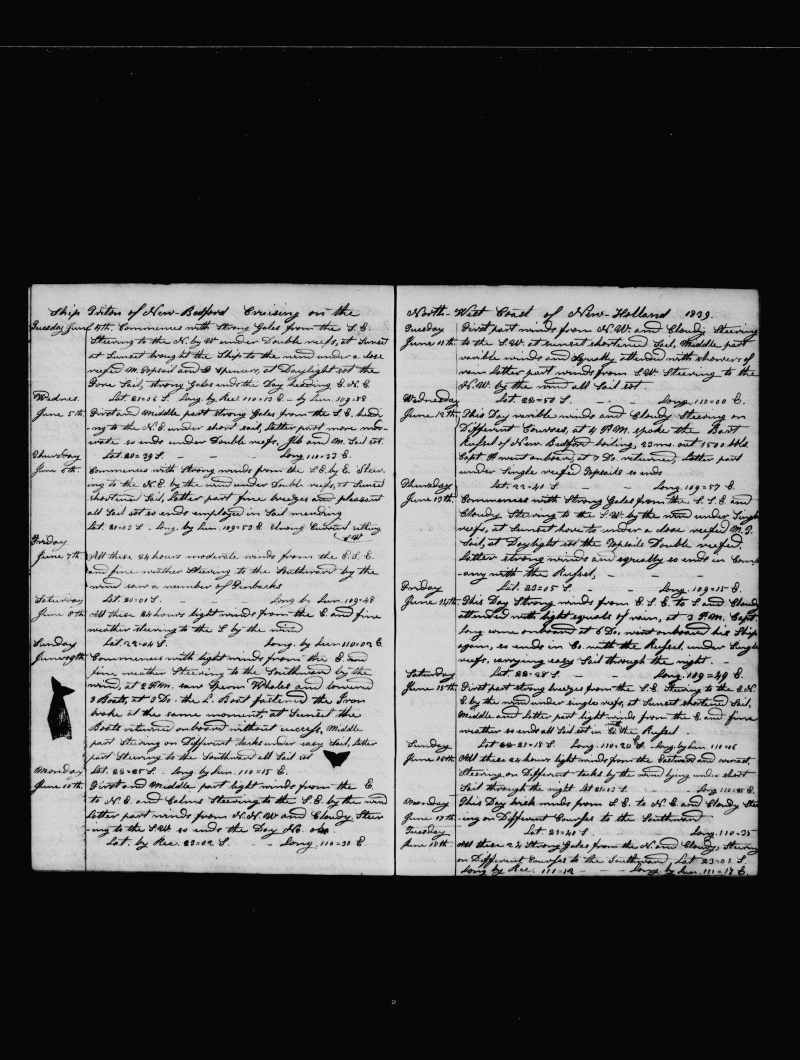 Ship Triton of New-Bedford Cruising on the
Tuesday June 4th. Commences with Strong Gales from the S.E.
Steering to the N by W under Double reefs, at Sunset
at Sunset braught the Ship to the wind under a close
reefed M. Topsail and F Spencer, at Daylight set the
Fore Sail, strong Gales ends the Day heading E.N.E.
Lat. 21=06 S. Long. by Rec. 110=13 E. - by Lun. 109=58
Wednes.
June 5th. First and Middle part strong Gales from the S.E. headi
-ng to the N.E. under short sail, latter part more mod-
-erate so ends under Double reefs, Jib and M. Sail set.
Thursday Lat 20=39 S. - - Long 110=37 E.
June 6th. Commences with Strong winds from the S.E. by E. Steer-
ing to the N.E. by the wind under Double reefs, at Sunset
shortened Sail, latter part fine breezes and pleasant
all Sail set so ends employed in Sail mending
Lat. 21=03 S. Long. by Lun. 109=53 E. strong Current setting
S.W.
Friday
June 7th. All these 24 hours moderate winds from the E.S.E.
and fine weather Steering to the Southward by the
wind saw a number of Finbacks
Saturday Lat. 21=01 S. - Long by Lun. 109=48
June 8th. All these 24 hours light winds from the E and fine
weather steering to the S by the wind
Sunday Lat. 22=04 S. Long. by Lun 110=02 E.
June 9th. Commences with light winds from the E and
fine weather Steering to the Southward by the
wind, at 2 P.M. saw Sperm Whales and lowered
3 Boats, at 3 Do. the L. Boat fastened the Iron
broke at the same moment, at Sunset the
Boats returned onboard without success, Middle
part Steering on Different tacks under easy Sail, latter
part Steering to the Southward all Sail set
Monday Lat. 22=25 S. - Long by Lun. 110=15 E.
June 10th. First and Middle part light winds from the E.
to N.E. and Calms Steering to the S.E. by the wind
Latter part winds from N.N.W and Cloudy Steer
-ing to the S.W. so ends the Day No.
Lat. by Rec. 23=02 S. - Long. 110=30 E.
North-West Coast of New-Holland 1839.
Tuesday First part winds from N.W and Cloudy Steering
June 11th. to the S.W. at sunset shortened Sail, Middle part
varible winds and Squally attended with showers of
rain latter part winds from S.W. Steering to the
N.W. by the wind all Sail set.
Wednesday Lat. 22=50 S. - - Long. 110=00 E.
June 12th. This Day varible winds and Cloudy Steering on
Different Courses, at 4 P.M. spoke the Bark
Russel of New Bedford boiling, 23 ms. out 1500 bbls
Capt P. went onboard, at 7 Do. returned, latter part
under Single reefed Topsails so ends
Thursday Lat. 22=41 S. - - Long. 109=57 E.
June 13th. Commences with Strong Gales from the S.S.E. and
Cloudy Steering to the S.W. by the wind under Single
reefs, at Sunset hove to under a close reefed M.T.
Sail, at Daylight set the Topsails Double reefed.
Latter strong winds and squally so ends in Comp
-any with the Russel, -
Friday Lat. 23=05 S. - Long. 109=15 E.
June 14th. This Day Strong winds from E.S.E. to S. and Cloudy
attended with light squals of rain, at 3 P.M. Capt.
long came onboard at 6 Do. went onboard his Ship
again, so ends in Co. with the Russel, under Single
reefs, carrying easy Sail through the night.
Saturday Lat. 22=28 S. - - Long. 109=49 E.
June 15th. First part strong breezes from the S.E. Steering to the E.N.
E. by the wind under single reefs, at Sunset shortened Sail,
Middle and latter part light winds from the E. and fine
weather so ends all Sail set in Co with the Russel.
Sunday Lat 22=21=18 S. Long. 110=20 E. - Long. by Lun. 110=16
June 16th. All these 24 hour light winds from the Eastward and
Steering on Different tacks by the wind lying under short
Sail through the night Lat 21=03 S. - Long 110=25 E.
Monday This Day brisk winds from S.E. to N.E. and Cloudy Stee
June 17th. -ing on Different Courses to the Southward
Tuesday Lat 21=40 S. Long. 110=35
June 18th. All these 24 Strong Gales from the N. and Cloudy, Steering
on Different Courses to the Southward, Lat 23=01 S.
Long by Rec. 111=12 - - Long. by Lun. 111=17 E